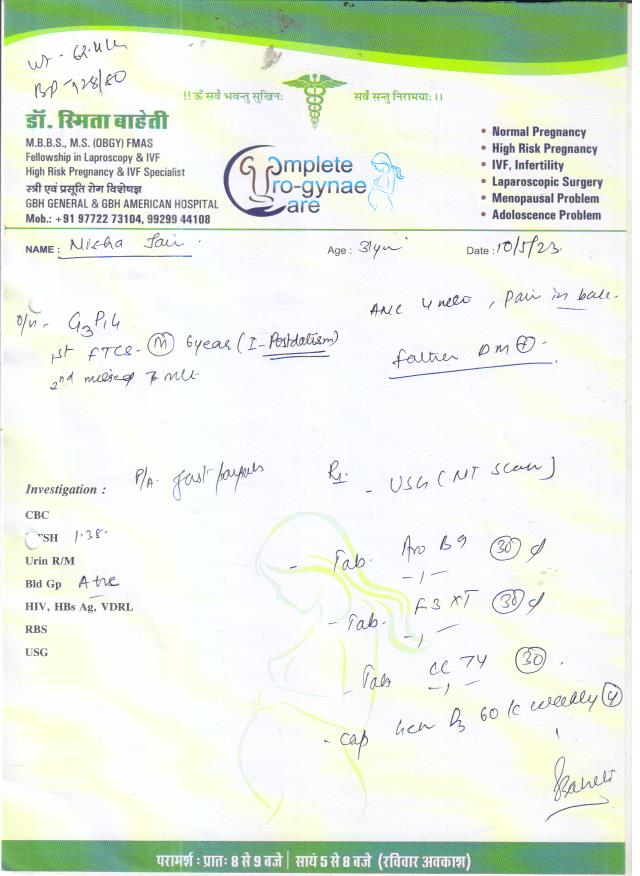 BP - 128/80
!! ॐ सर्वे भवन्तु सुखिनः सर्वे सन्तु निरामयाः ।।
डॉ. स्मिता बाहेती
M.B.B.S., M.S. (OBGY) FMAS
Fellowship in Laproscopy & IVF
High Risk Pregnancy & IVF Specialist
स्त्री एवं प्रसूति रोग विशेषज्ञ
GBH GENERAL & GBH AMERICAN HOSPITAL
Mob.: +91 97722 73104, 99299 44108
Complete
Uro-gynae
Care
• Normal Pregnancy
• High Risk Pregnancy
• IVF, Infertility
• Laparoscopic Surgery
• Menopausal Problem
• Adoloscence Problem
NAME : Nisha Jain Age : 31yr Date : 10/5/23
ANC , Pain in
father DM +
1st FTCS - M 6year (I - Postdatism)
2nd
P/A.
Rx.
- USG (NT Scan)
Investigation :
CBC
TSH 1.38
Urin R/M
Bld Gp A +ve
HIV, HBs Ag, VDRL
RBS
USG
- Tab. B9 30
- Tab. F3 XT 30
- Tab 30
- Cap D3 60 K weekly 4
परामर्श : प्रातः 8 से 9 बजे | सायं 5 से 8 बजे (रविवार अवकाश)